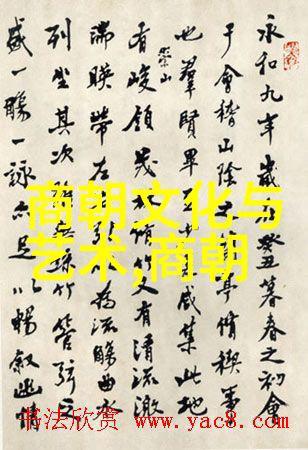 永和九年歲癸丑暮春之初會
于會稽山陰亭脩稧事
也羣賢畢咸集此地
有崇山峻領茂脩竹又有清流激
湍暎帶左為流觴曲水
列坐其次竹管弦之
盛一觴一詠亦足以暢叙幽情
商朝文化与
艺术,商朝
书法欣赏 www.yac8.com